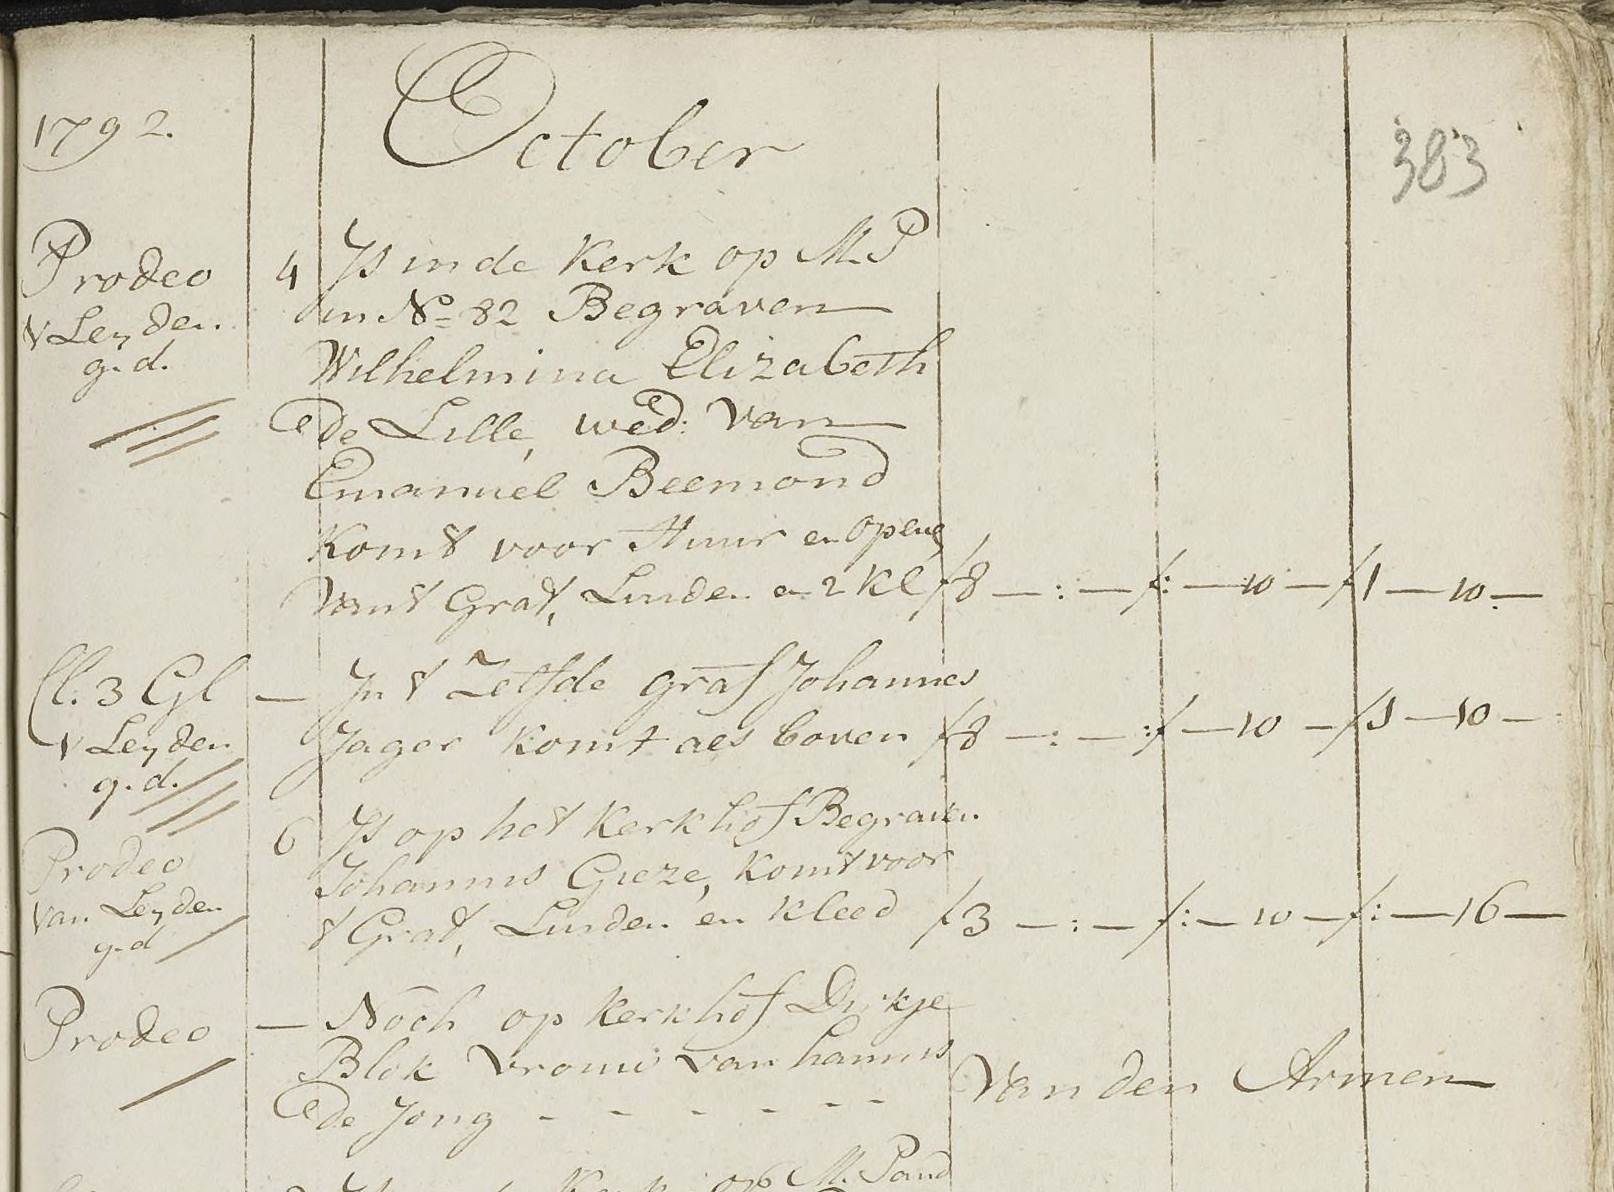 1792.
October
383
Prodeo
v Leyden
g. d.
4 Is in de Kerk op M. P
in No 82 Begraven
Wilhelmina Elizabeth
de Lille, wed: van
Emanuel Beemond
Komt voor Huur en open
van t Graf, Luiden en 2 Kl f 8 —:— f: — 10 — f 1 — 10 —
Cl. 3 Gl
v Leyden
g. d.
— In t Zelfde graf Johannes
Jager komt aes boven f 8 —:— :f — 10 — f 1 — 10 —
Prodeo
van Leyden
g. d
6 Is op het Kerkhof Begraven
Johannis Gieze, komt voor
t Graf, Luiden en Kleed f 3 —:— f: — 10 — f: — 16 —
Prodeo
— Noch op Kerkhof Dirkje
Blok vrouw van hannis
de Jong - - - - - - - van den Armen
Kerk op M. Pand